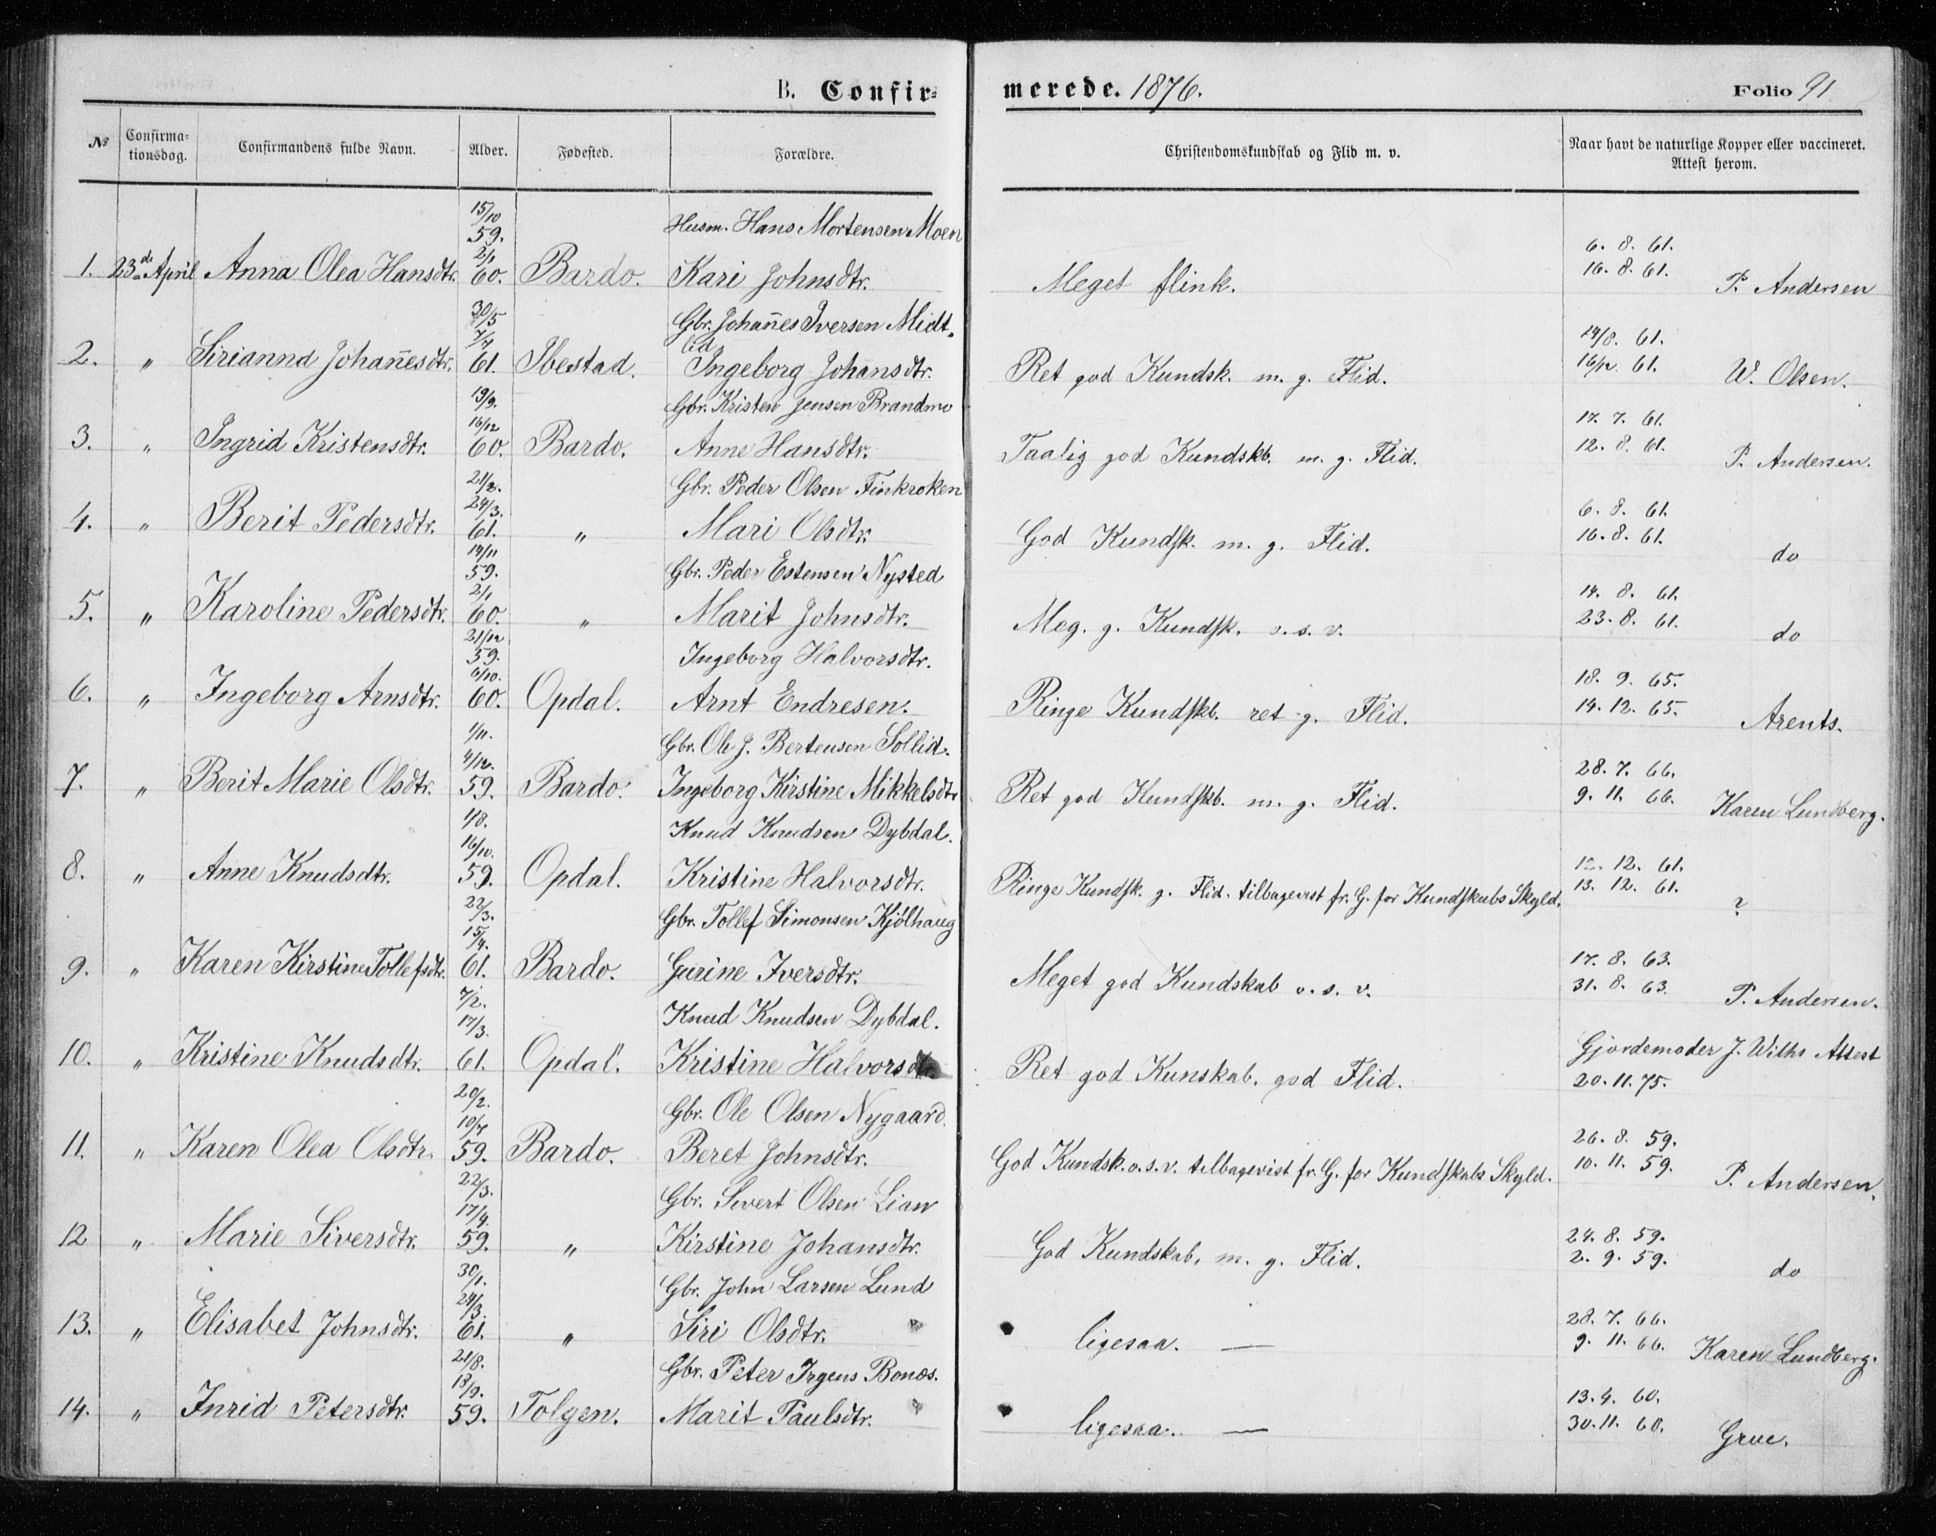 B. Confirmerede. 1876. Folio 91
№ Confirmationsdag. Confirmandens fulde Navn. Alder. Fødested. Forældre. Christendomskundskab og Flid m. v. Naar havt de naturlige Kopper eller vaccineret. Attest herom.
15/10 59. Husm. Hans Mortensen Moen 6. 8. 61.
2/1 16. 8. 61.
1. 23de April Anna Olea Hansdtr. 60. Bardo. Kari Johnsdtr. Meget flink. P. Andersen
30/5 Gbr. Johan̄es Iversen Midtlid 14/8. 61.
7/7
2. " Sirianna Johan̄esdtr. 61. Ibestad. Ingeborg Johansdtr. Ret god Kundsk. m. g. Flid. 16/12 61. W. Olsen.
13/9. Gbr. Kristen Jensen Brandmo 17. 7. 61.
16/12
3. " Ingrid Kristensdtr. 60. Bardo. Anne Hansdtr. Taalig god Kundskb. m. g. Flid. 12. 8. 61. P. Andersen.
21/2. Gbr. Peder Olsen Finkroken 6. 8. 61.
24/3.
4. " Berit Pedersdtr. 61. " Mari Olsdtr. God Kundsk. m. g. Flid. 16. 8. 61. do
14/11 59. Gbr. Peder Estensen Nysted 14. 8. 61.
2/1
5. " Karoline Pedersdtr. 60. " Marit Johnsdtr. Meg. g. Kundsk. o. s. v. 23. 8. 61. do
21/12 59. Ingeborg Halvorsdtr. 18. 9. 65.
6/10.
6. " Ingeborg Arnsdtr. 60. Opdal. Arnt Endresen. Ringe Kundskb. ret g. Flid. 14. 12. 65. Arents.
1/11. Gbr. Ole J. Bertensen Sollid. 28. 7. 66.
4/12.
7. " Berit Marie Olsdtr. 59. Bardo. Ingeborg Kirstine Mikkelsdtr Ret god Kundskb. m. g. Flid. 9. 11. 66. Karen Lundberg.
1/8. Knud Knudsen Dybdal. 12. 12. 61.
16/10.
8. " Anne Knudsdtr. 59. Opdal. Kristine Halvorsdtr. Ringe Kundsk. g. Flid. tilbagevist fr. G. for Kundskabs Skyld. 13. 12. 61. ?
22/3. Gbr. Tollef Simonsen Kjölhaug 17. 8. 63.
15/4.
9. " Karen Kirstine Tollefsdtr. 61. Bardo. Gurine Iversdtr. Meget god Kundskab o. s. v. 31. 8. 63. P. Andersen.
7/2. Knud Knudsen Dybdal. Gjordemoder J. Withs Attest
17/3.
10. " Kristine Knudsdtr. 61. Opdal. Kristine Halvorsdtr Ret god Kunskab. god Flid. 20. 11. 75.
20/2. Gbr. Ole Olsen Nygaard. 26. 8. 59.
10/4
11. " Karen Olea Olsdtr. 59. Bardo. Beret Johnsdtr. God Kundsk. o. s. v. tilbagevist fr. G. for Kundskabs Skyld. 10. 11. 59. P. Andersen.
22/3. Gbr. Sivert Olsen Lian 24. 8. 59.
17/4.
12 " Marie Siversdtr. 59. " Kirstine Johansdtr. God Kundskab. m. g. Flid. 2. 9. 59. do
30/1. Gbr. John Larsen Lund 28. 7. 66.
24/3.
13. " Elisabet Johnsdtr. 61. " Siri Olsdtr. ligesaa. — 9. 11. 66. Karen Lundberg.
21/8. Gbr. Peter Irgens Bonæs. 13. 4. 60.
13/9.
14. " Inrid Petersdtr. 59. Tolgen. Marit Paulsdtr. ligesaa. — 30. 11. 60. Grue.